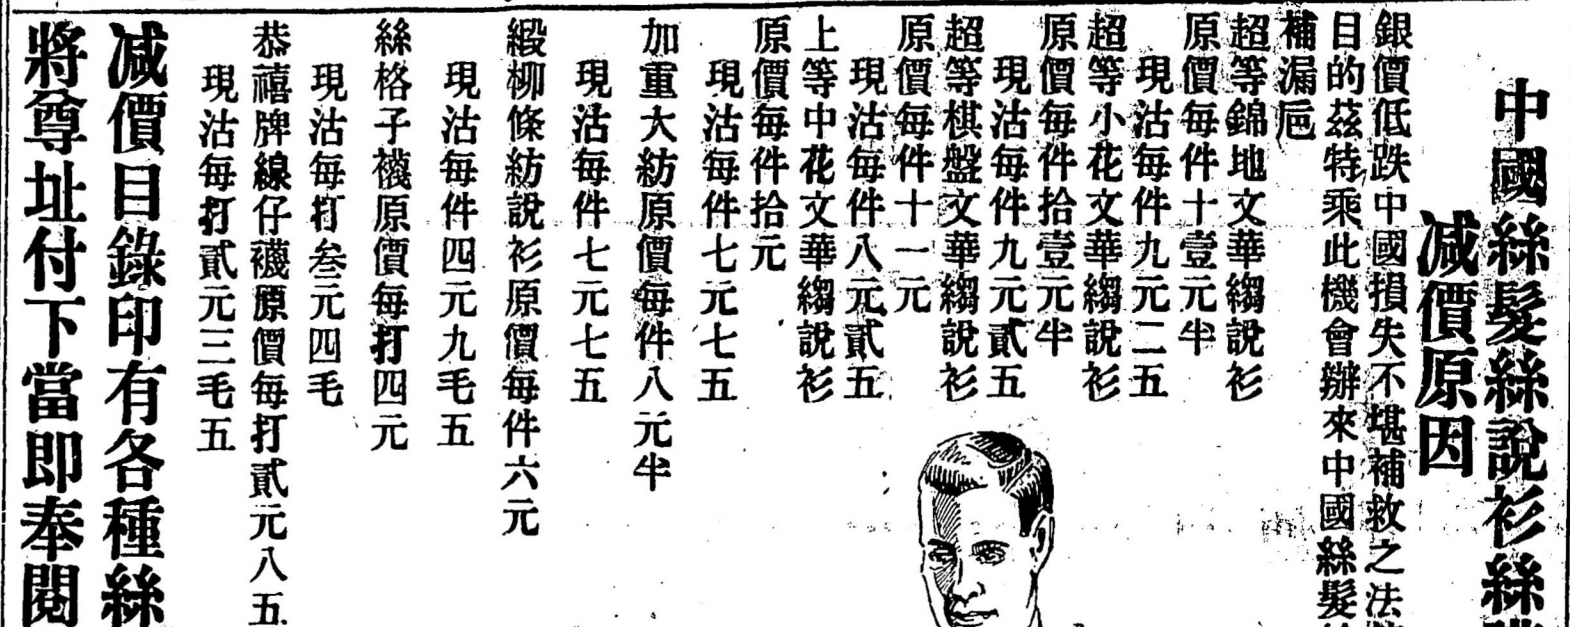 中國絲髮絲說衫絲
減價原因
銀價低跌中國損失不堪補救之法
目的茲特乘此機會辦來中國絲髮
補漏巵
超等錦地文華縐說衫
原價每件十壹元半
現沽每件九元二五
超等小花文華縐說衫
原價每件拾壹元半
現沽每件九元貳五
超等棋盤文華縐說衫
原價每件十一元
現沽每件八元貳五
上等中花文華縐說衫
原價每件拾元
現沽每件七元七五
加重大紡原價每件八元半
現沽每件七元七五
緞柳條紡說衫原價每件六元
現沽每件四元九毛五
絲格子襪原價每打四元
現沽每打叁元四毛
恭禧牌線仔襪原價每打貳元八五
現沽每打貳元三毛五
減價目錄印有各種絲
將尊址付下當即奉閱